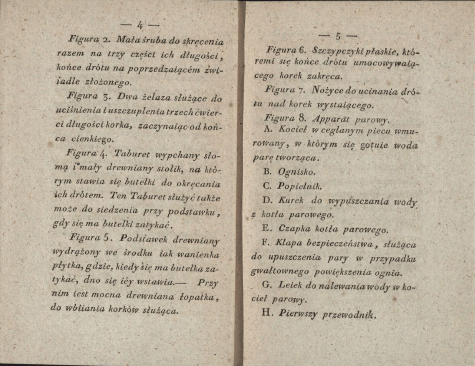 — 4 —
Figura 2. Mała śruba do skręcenia
razem na trzy części ich długości,
końce drótu na poprzedzaiącém źwi-
iadle złożonego.
Figura 3. Dwa żelaza służące do
uciśnienia i uszczuplenia trzech ćwier-
ci długości korka, zaczynaiąc od koń-
ca cienkiego.
Figura 4. Taburet wypchany sło-
mą i mały drewniany stolik, na któ-
rym stawia się butelki do okręcania
ich drótem. Ten Taburet służyć także
może do siedzenia przy podstawku,
gdy się ma butelki zatykać.
Figura 5. Podstawek drewniany
wydrążony we środku iak wanienka
płytka, gdzie, kiedy się ma butelka za-
tykać, dno się iéy wstawia.— Przy
nim iest mocna drewniana łopatka,
do wbiiania korków służąca.
— 5 —
Figura 6. Szczypczyki płaskie, któ-
remi się końce drótu umocowywaią-
cego korek zakręca.
Figura 7. Nożyce do ucinania dró-
tu nad korek wystaiącego.
Figura 8. Apparat parowy.
A. Kocieł w ceglanym piecu wmu-
rowany, w którym się gotuie woda
parę tworząca.
B. Ognisko.
C. Popielnik.
D. Kurek do wypuszczania wody
z kotła parowego.
E. Czapka kotła parowego.
F. Klapa bezpieczeństwa, służąca
do upuszczenia pary w przypadku
gwałtownego powiększenia ognia.
G. Leiek do nalewania wody w ko-
cieł parowy.
H. Pierwszy przewodnik.